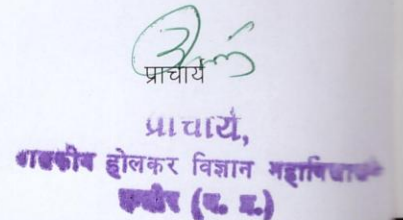 प्राचार्य
प्राचार्य,
शासकीय होलकर विज्ञान महाविद्यालय
इन्दौर (म. प्र.)